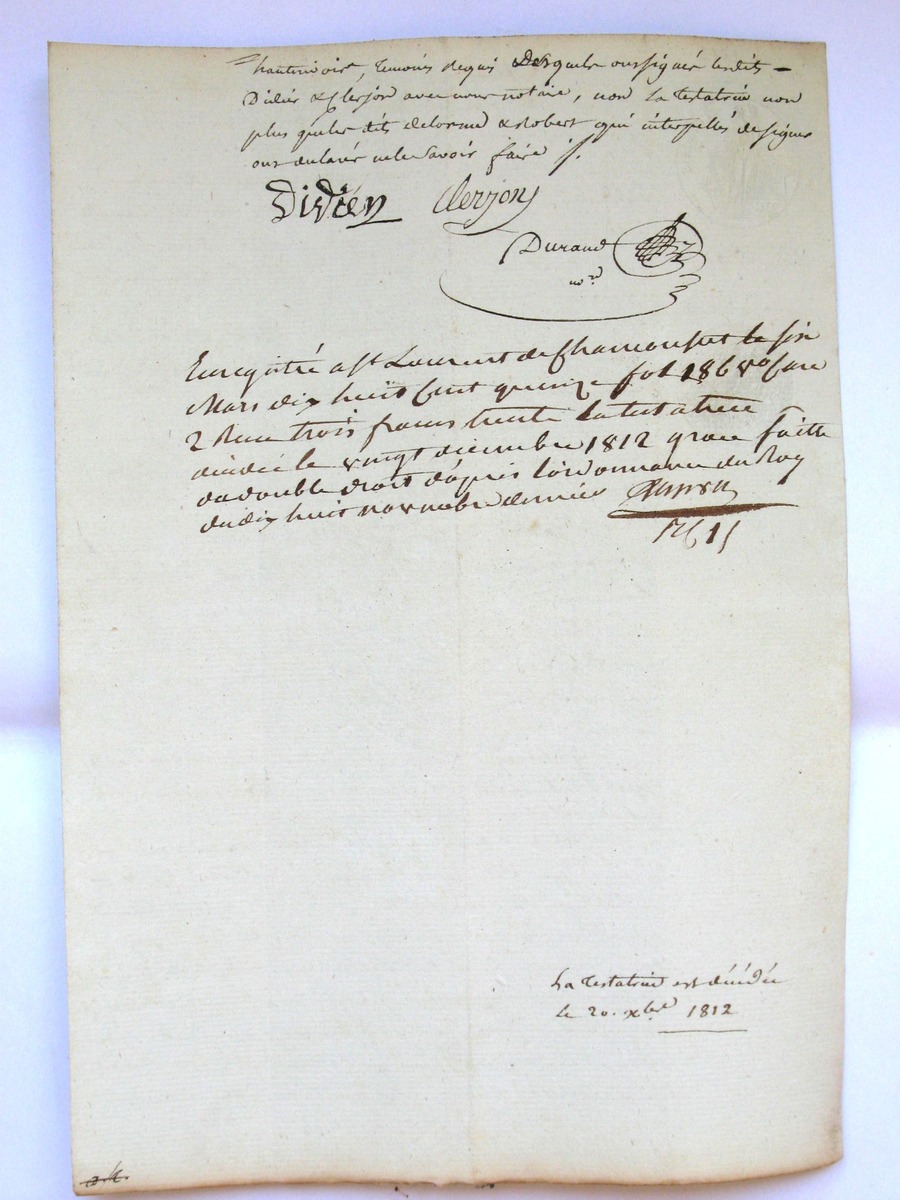 hautinoire, temoins requis desquels ont signé lesdits
Didier & Clerjon avec nous notaire, non la testatrice non
plus que les dits delorme & Robert qui interpellés de signer
ont déclaré ne le savoir faire
Didiéy
Clerjon
Durand
nore
Enregistré a St Laurent de Chamousset le six
Mars dix huit cent quinze fol 186 vo Case
2 Reçu trois francs trente la testatrice
décédée le vingt decembre 1812 grace faitte
du double droit d'après l'ordonnance du Roy
du dix huit novembre dernier
La Testatrice est décédée
le 20. xbre 1812